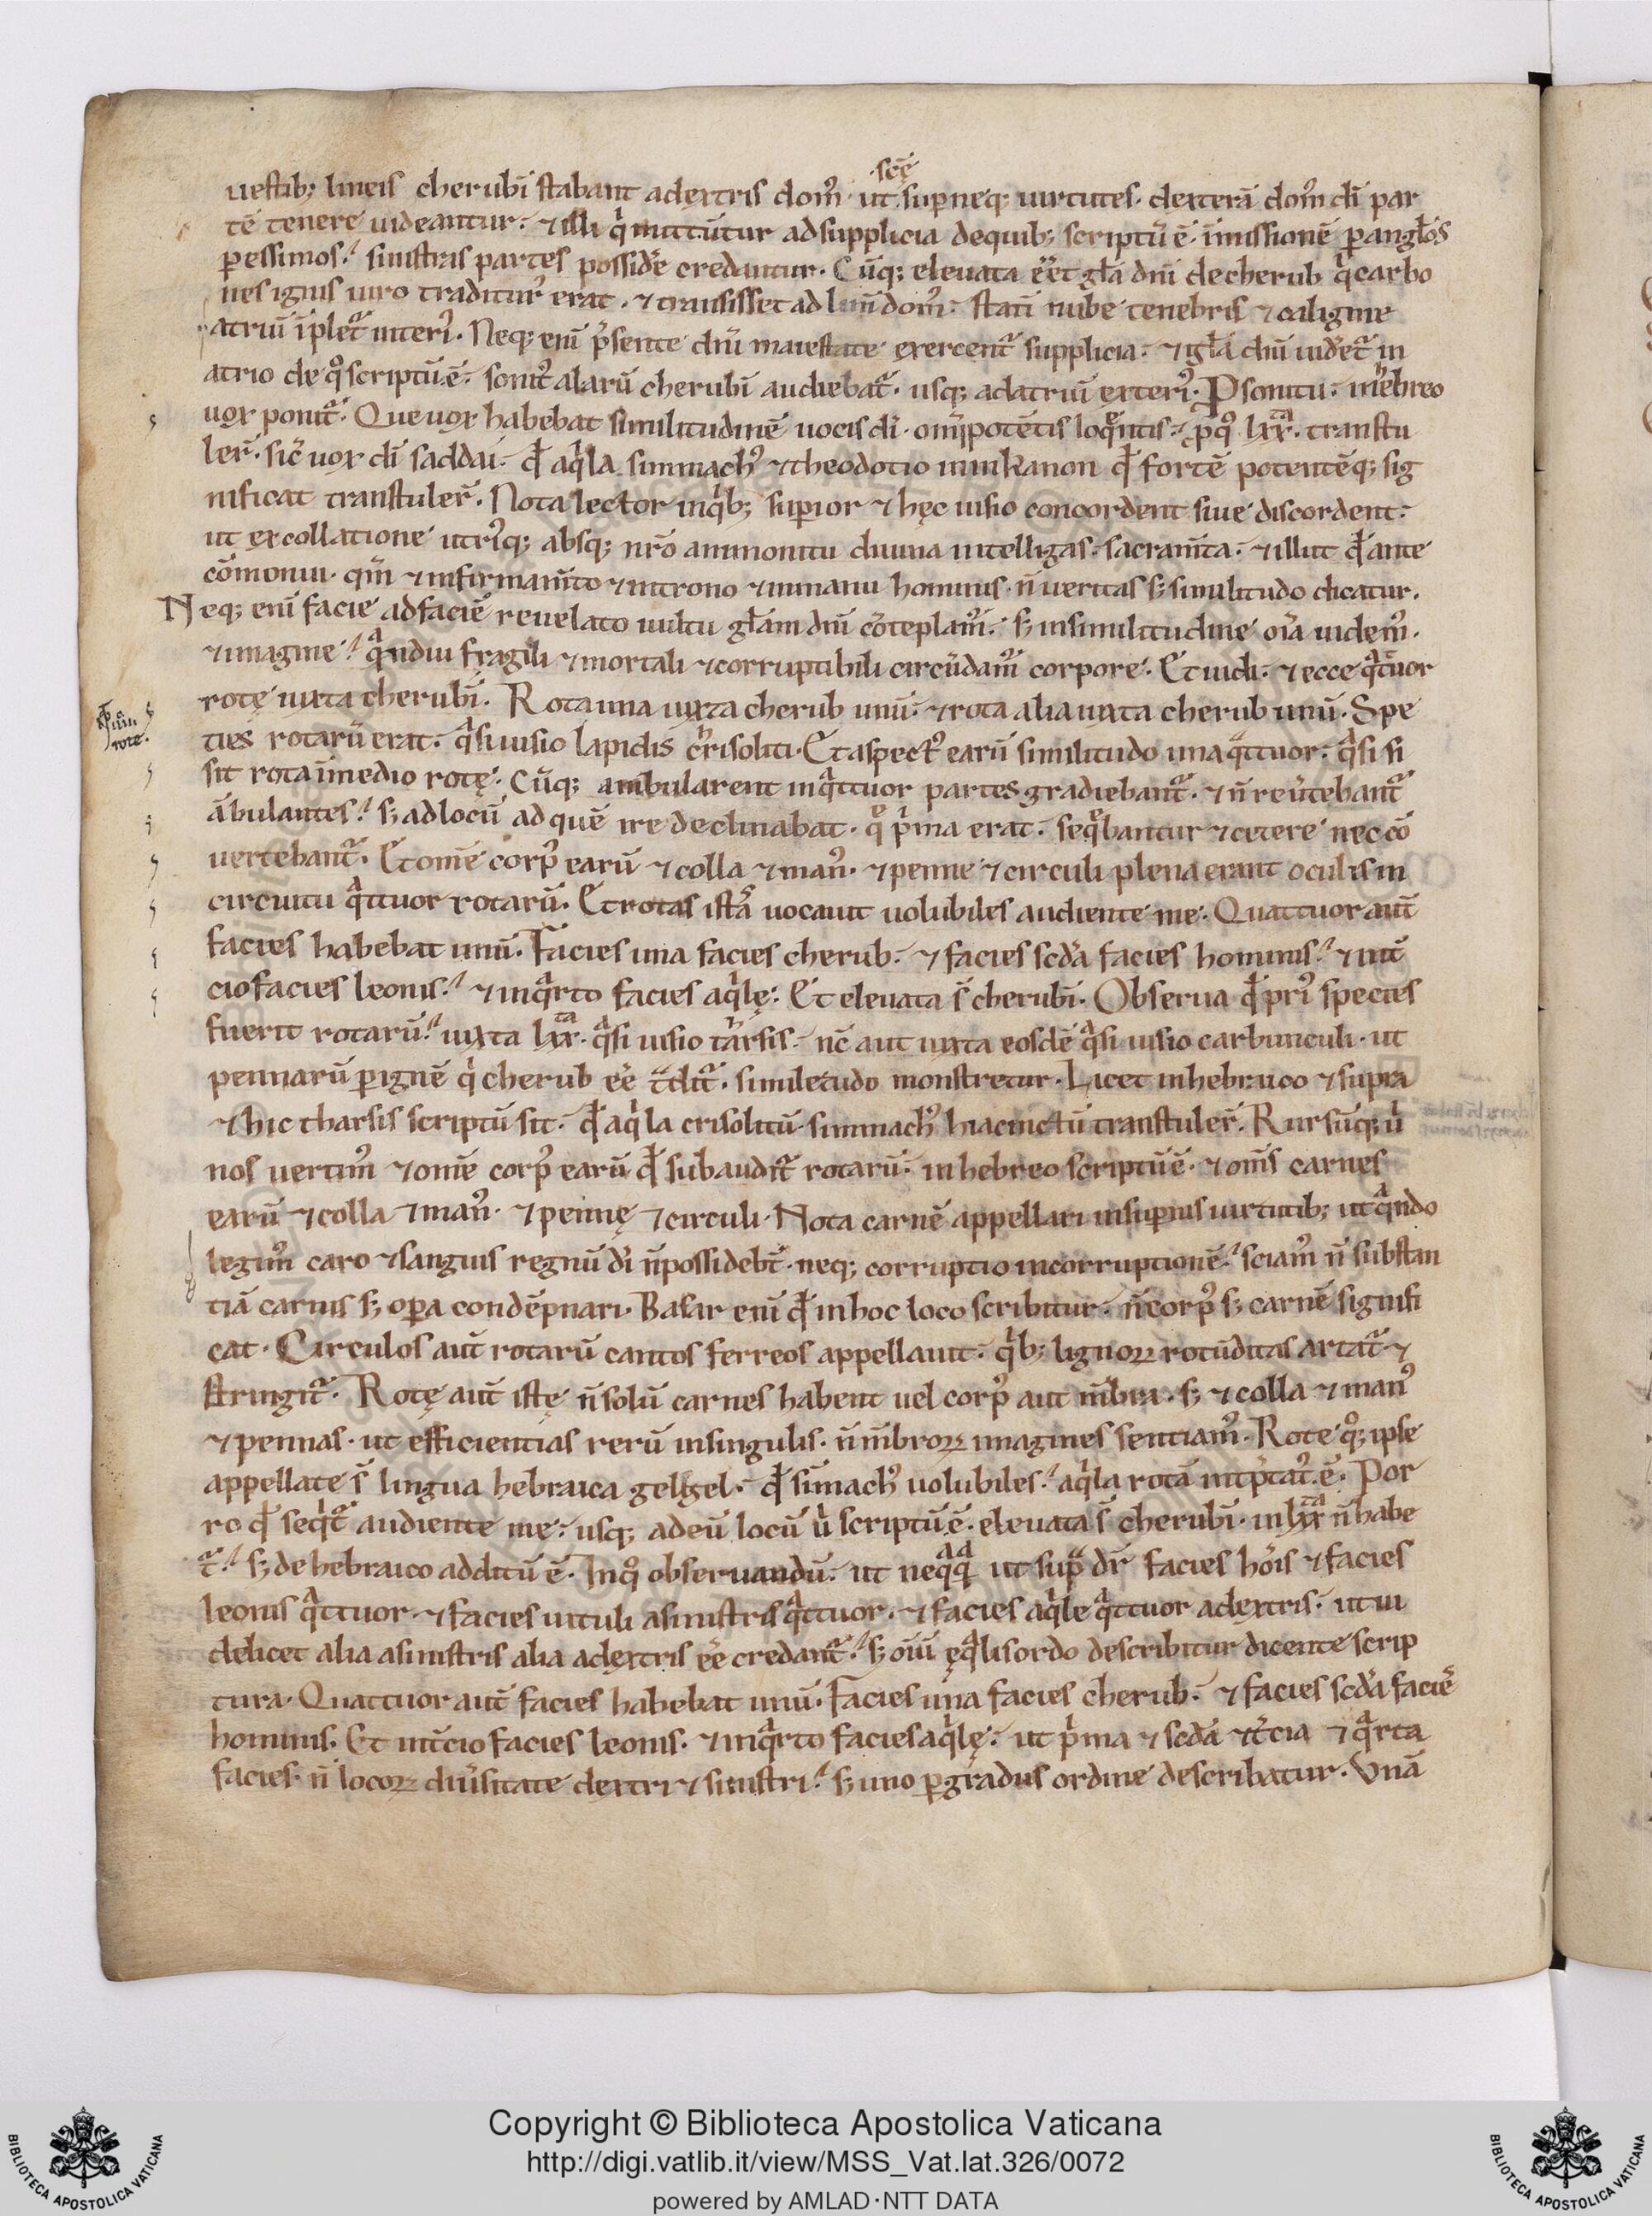 scę
uestib; lineis cherubī stabant adextris dom᷒· ut superneq; uirtutes· dexterā dom᷒ dī par
tē tenere uideantur· ⁊ illi qͥ mittūtur adsupplicia dequib; scriptū ē· īmissionē ꝑanglōs
ꝑessimos· sinistras partes possidꝰe credantur· Cūq; eleuata eēt glā dnī decherub qͥ carbo
nes ignis uiro traditur᷒ erat· ⁊ transisset ad limī dom᷒· statī nube tenebris ⁊ caligine
atriū īpletͬ interi᷒· Neq; enī p̄sente dnī maiestate exercentͬ supplicia· ⁊ iglā dnī uidetͬ in
atrio de qͦ scriptū ē· sonit᷒ alarū cherubī audiebatͬ· usq; adatriū exteri᷒· Psonitu· inhebreo
uox ponitͬ· Que uox habebat similitudinē uocis dī· omīpotētis loquentis· ꝓqͦ lxxͭͣ· transtu
lerͬ· sic̄ uox dī saddai· qd̄ aqͥla simmach᷒ ⁊theodotio inikanon qd̄ fortē potentēq; sig
nificat transtuler̄· Nota lector inqͥb; suꝑior ⁊ hęc uisio concordent siue discordent·
ut excollatione utri᷒q; absq; nr̄o ammonitu diuina intelligas· sacram̄ta· ⁊illut qd̄ ante
cōmonui· qm̄ ⁊infirmam̄to ⁊introno ⁊inmanu hominis· n̄ ueritas s; similitudo dicatur·
Neq; enī facie adfaciē reuelato uultu glāam dnī cōteplam᷒· s; insimilitudine oīa uidem᷒·
⁊imagine· qͣndiu fragili ⁊mortali ⁊corruptibili circūdam᷒ corpore· Et uidi· ⁊ ecce qͣttuor
rotę iuxta cherubī· Rota una iuxta cherub unū· ⁊rota alia iuxta cherub unū· Spe
ties rotarū erat· qͣsi uisio lapidis crͪisoliti· Et aspect᷒ earū similitudo una qͣttuor· qͣsi si
sit rota īmedio rotę· Cūq; ambularent inqͣttuor partes gradiebantͬ· ⁊ n̄ reūtebantͬ
ābulantes· s; adlocū ad quē ire declinabat· qͦ pͥma erat· sequebantur ⁊cetere nec cō
uertebantͬ· Et omē corp᷒ earū ⁊ colla ⁊ man᷒· ⁊ penne ⁊ circuli plena erant oculis in
circuitu qͣttuor rotarū· Et rotas istas uocauit uolubiles audiente me· Quattuor aut̄
facies habebat unū· Facies una facies cherub· ⁊ facies scd̄a facies hominis· ⁊ int̄
cio facies leonis· ⁊ inqͣrto facies aqͥlę· Et eleuata s̄ cherubī· Obserua qd̄ pri᷒ species
fuerit rotarū· iuxta lxxͭͣ· qͣsi uisio tarͪsis· nc̄ aut iuxta eosdē qͣsi uisio carbunculi· ut
pennarū ꝑignē qͥ cherub eē tͣditͬ· similetudo monstretur· Licet inhebraico ⁊ supra
⁊ hic tharsis scriptū sit· qd̄ aqͥla crisolitū· simmach᷒ hiacinctū transtuler̄· Rursūq; uͥ
nos uertim᷒ ⁊omē corp᷒ earū qd̄ subauditͬ rotarū· inhebreo scriptū ē· ⁊ om̄s carnes
earū ⁊colla ⁊man᷒· ⁊ pennę ⁊circuli· Nota carnē appellari insuꝑnis uirtutib; ut qͣndo
legim᷒ caro ⁊sanguis regnū dī n̄possidebt̄· neq; corruptio incorruptionē· sciam᷒ n̄ substan
tiā carnis s; oꝑa condēpnari· Basar enī qd̄ inhoc loco scribitur· n̄corp᷒ s; carnē signifi
cat· Circulos aut̄ rotarū cantos ferreos appellauit· qͥb; lignoꝝ rotūditas artatͬ ⁊
stringitͬ· Rotę aut̄ istę n̄solū carnes habent uel corp᷒ aut m̄bra· s; ⁊ colla ⁊ man᷒
⁊pennas· ut efficientias rerū insingulis· n̄ m̄broꝝ imagines sentiam᷒· Rote qͦq; ipse
appellate s̄ lingua hebraica gelgel· qd̄ sīmach᷒ uolubiles· aqͥla rotā int̄ptat᷒ ē· Por
ro qd̄ seqͥtͬ audiente me· usq; adeū locū uͥ scriptū ē· eleuata s̄ cherubī· in lxxͭͣ n̄ habe
tͬ· s; de hebraico additū ē· Inqͦ obseruandū· ut neqͣqͣ ut supͣ dr̄ facies hoīs ⁊ facies
leonis qͣttuor· ⁊ facies uituli asinistris qͣttuor· ⁊ facies aqͥle qͣttuor adextris· ut ui
delicet alia asinistris alia adextris eē credantͬ· s; oīū ęqͣlis ordo describitur dicente scrip
tura· Quattuor aut̄ facies habebat unū· Facies una facies cherub· ⁊ facies scd̄a faciē
hominis· Et int̄cio facies leonis· ⁊ inqͣrto facies aqͥlę· ut pͥma ⁊ scd̄a ⁊t̄cia ⁊ qͣrta
facies· n̄ locoꝝ diūsitate dextri ⁊ sinistri· s; uno ꝑgradus ordine describatur· Vnā
Copyright © Biblioteca Apostolica Vaticana
http://digi.vatlib.it/view/MSS_Vat.lat.326/0072
powered by AMLAD·NTT DATA
BIBLIOTECA APOSTOLICA VATICANA
BIBLIOTECA APOSTOLICA VATICANA